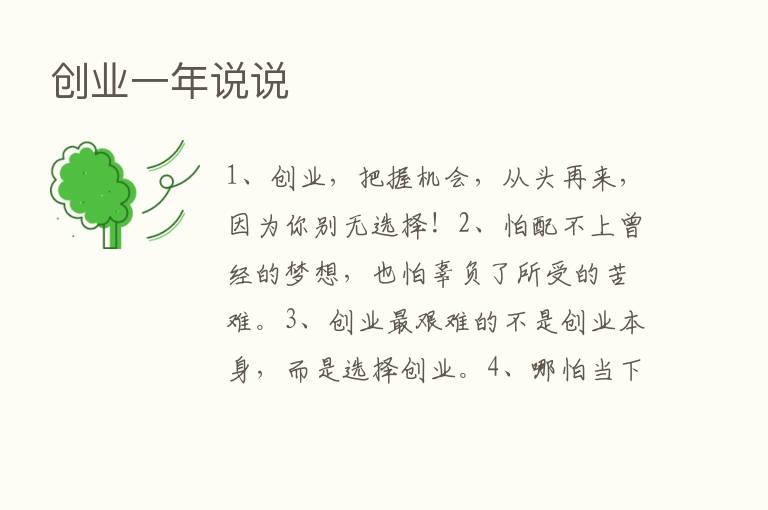 创业一年说说
1、创业，把握机会，从头再来，
因为你别无选择！2、怕配不上曾
经的梦想，也怕辜负了所受的苦
难。3、创业最艰难的不是创业本
身，而是选择创业。4、哪怕当下